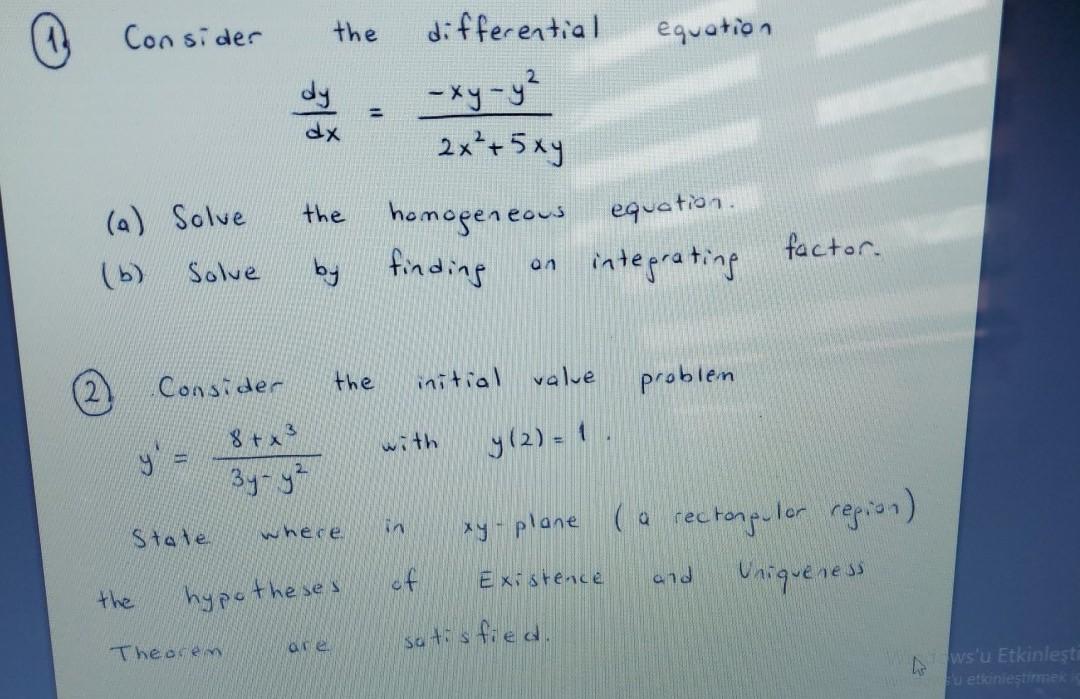 1) Consider the differential equation
dy/dx = (-xy-y²)/(2x²+5xy)
(a) Solve the homogeneous equation.
(b) Solve by finding an integrating factor.
2) Consider the initial value problem
y' = (8+x³)/(3y-y²) with y(2) = 1.
State where in xy-plane (a rectangular region)
the hypotheses of Existence and Uniqueness
Theorem are satisfied.
ws'u Etkinleşti
u etkinleştirmek